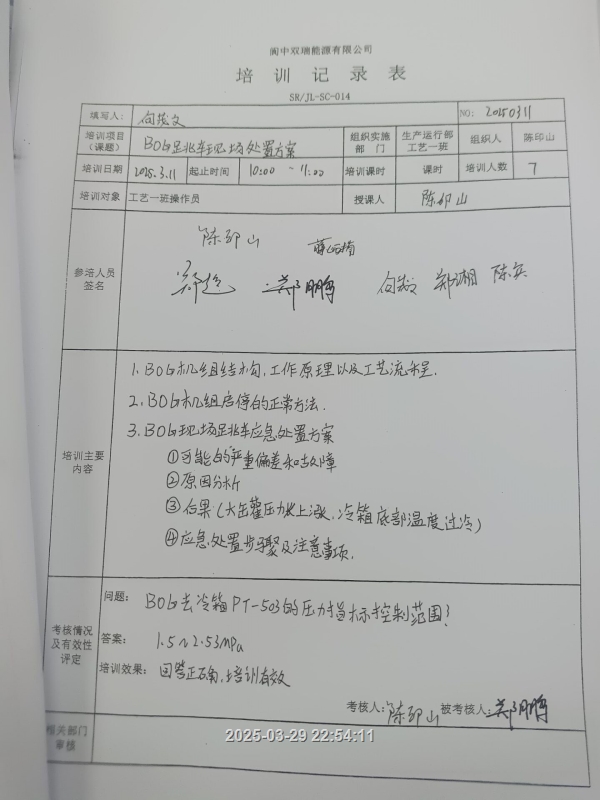 阆中双瑞能源有限公司
培训记录表
SR/JL-SC-014
填写人: NO: 20250311
培训项目(课题) BOG 现场处置方案 组织实施部门 生产运行部工艺一班 组织人 陈印山
培训日期 2025.3.11 起止时间 10:00 ~ 11:00 培训课时 课时 培训人数 7
培训对象 工艺一班操作员 授课人 陈印山
参培人员签名
陈印山
郑鹏 郑湘 陈兵
培训主要内容
1. BOG机组结构、工作原理以及工艺流程.
2. BOG机组启停的正常方法.
3. BOG现场 应急处置方案
①可能的严重偏差和故障
②原因分析
③后果(大储罐压力上涨、冷箱底部温度过冷)
④应急处置步骤及注意事项.
考核情况及有效性评定
问题: BOG去冷箱PT-503的压力指标控制范围?
答案: 1.5~2.53MPa
培训效果: 回答正确,培训有效
考核人: 陈印山 被考核人: 郑鹏
相关部门审核
2025-03-29 22:54:11